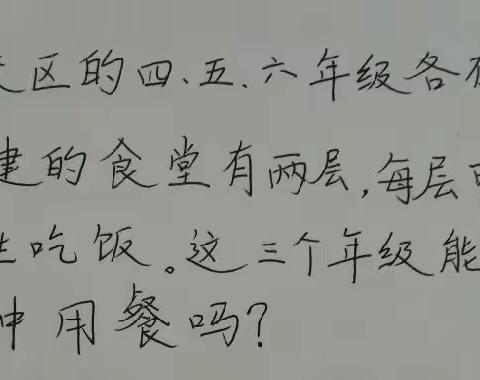 区的四、五、六年级各
建的食堂有两层,每层
吃饭。这三个年级能
用餐吗?